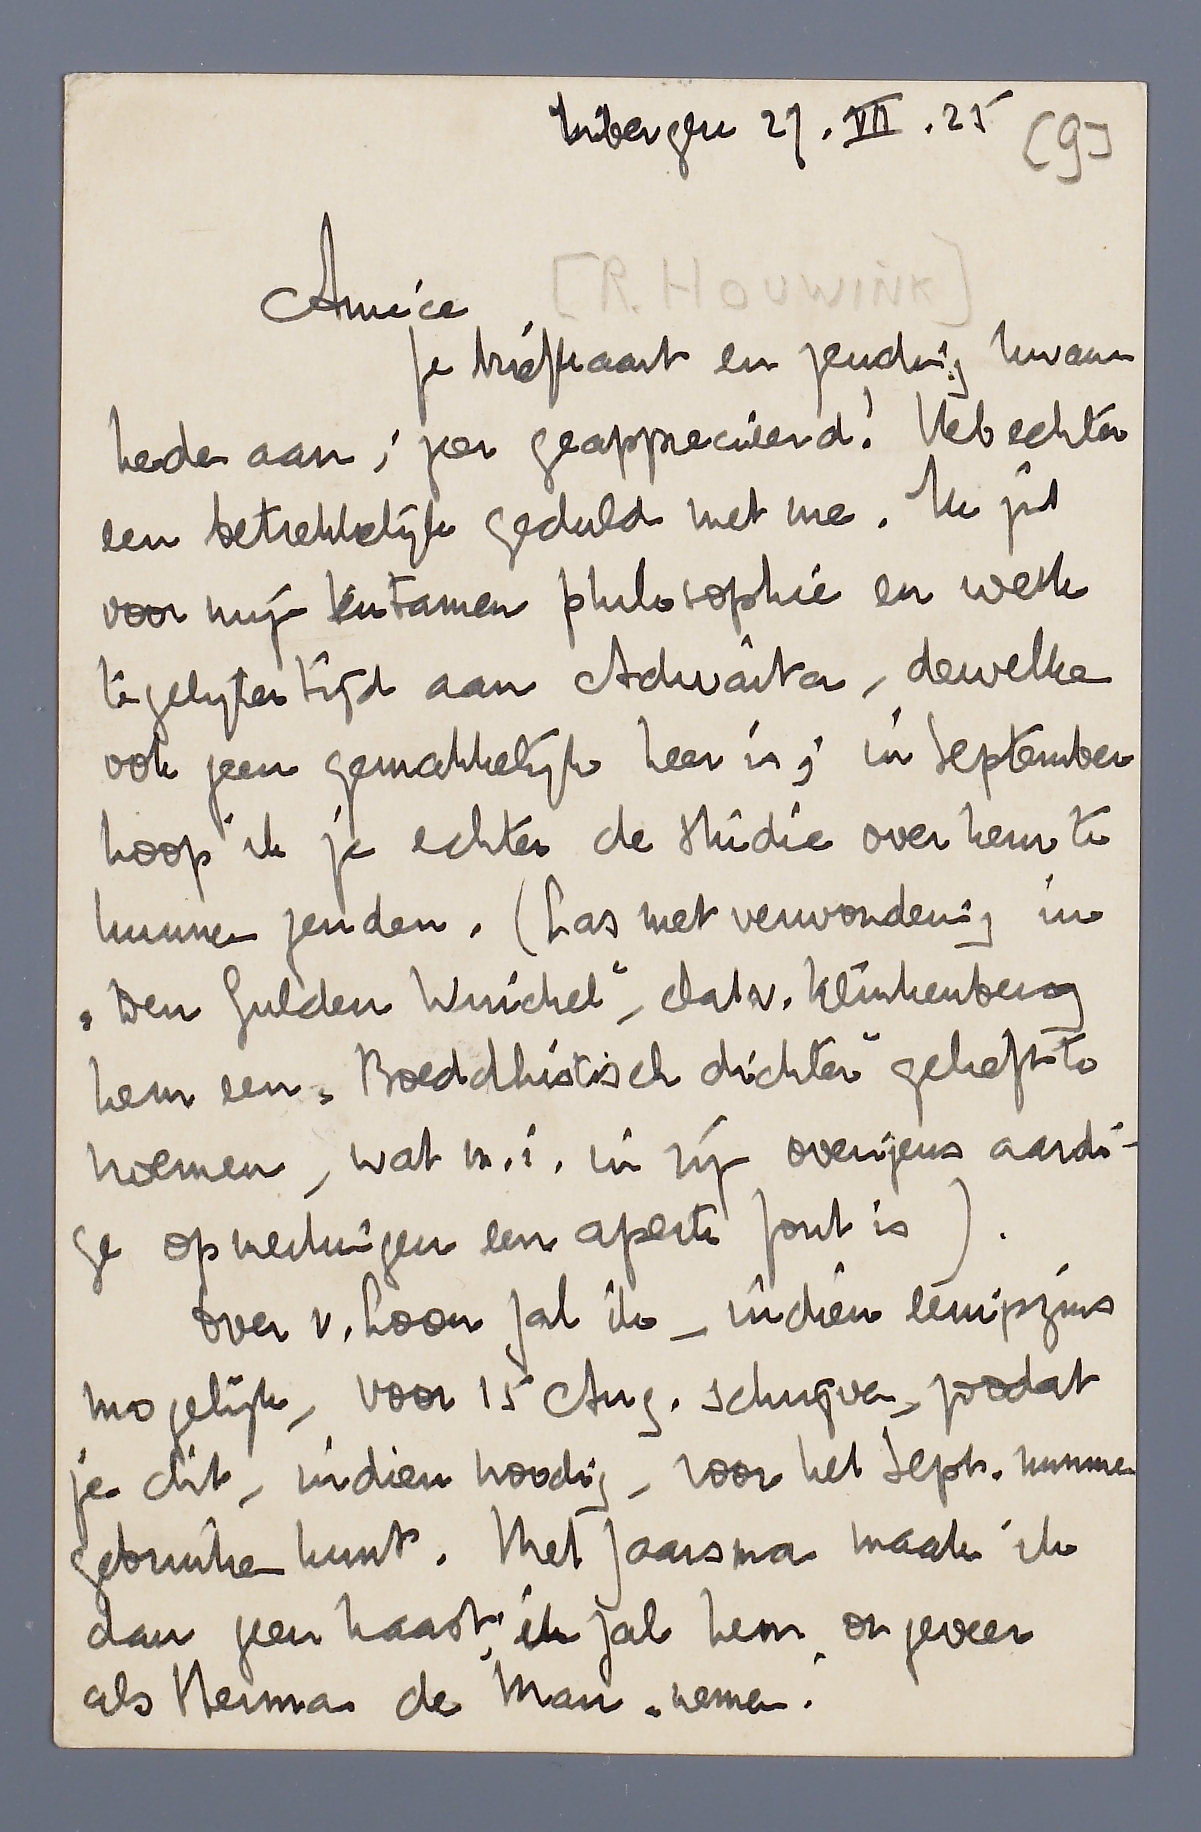 Tubbergen 27.VII.25 [9]
Amice [R. HOUWINK]
je briefkaart en zending kwam
heden aan; zeer geapprecieerd! Heb echter
een betrekkelijk geduld met me. Ik zit
voor mijn tentamen philosophie en werk
tegelijkertijd aan Adwaïta, dewelke
ook geen gemakkelijk heer is; in September
hoop ik je echter de studie over hem te
kunnen zenden. (Las met verwondering in
„Den Gulden Winckel", dat v. Klinkenberg
hem een „Boeddhistisch dichter" geliefde te
noemen, wat m.i. in zijn overigens aardi-
ge opmerkingen een aperte fout is).
Over v. Loon zal ik, indien eenigszins
mogelijk, voor 15 Aug. schrijven, zoodat
je dit, indien noodig, voor het Sept. nummer
gebruiken kunt. Met Jaarsma maak ik
dan geen haast; ik zal hem ongeveer
als Herman de Man „nemen.